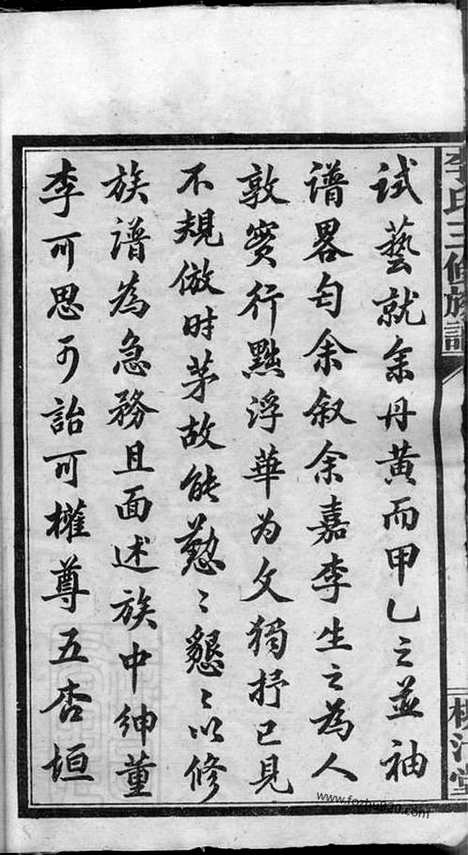 李氏三修族譜
試藝就余丹黃而甲乙之並袖
譜畧匄余叙余嘉李生之為人
敦實行黜浮華为文獨抒已見
不規倣时茅故能懃〻懇〻以修
族譜為急務且面述族中紳董
李可思可詒可權尊五杏垣
www.fozhu920.com